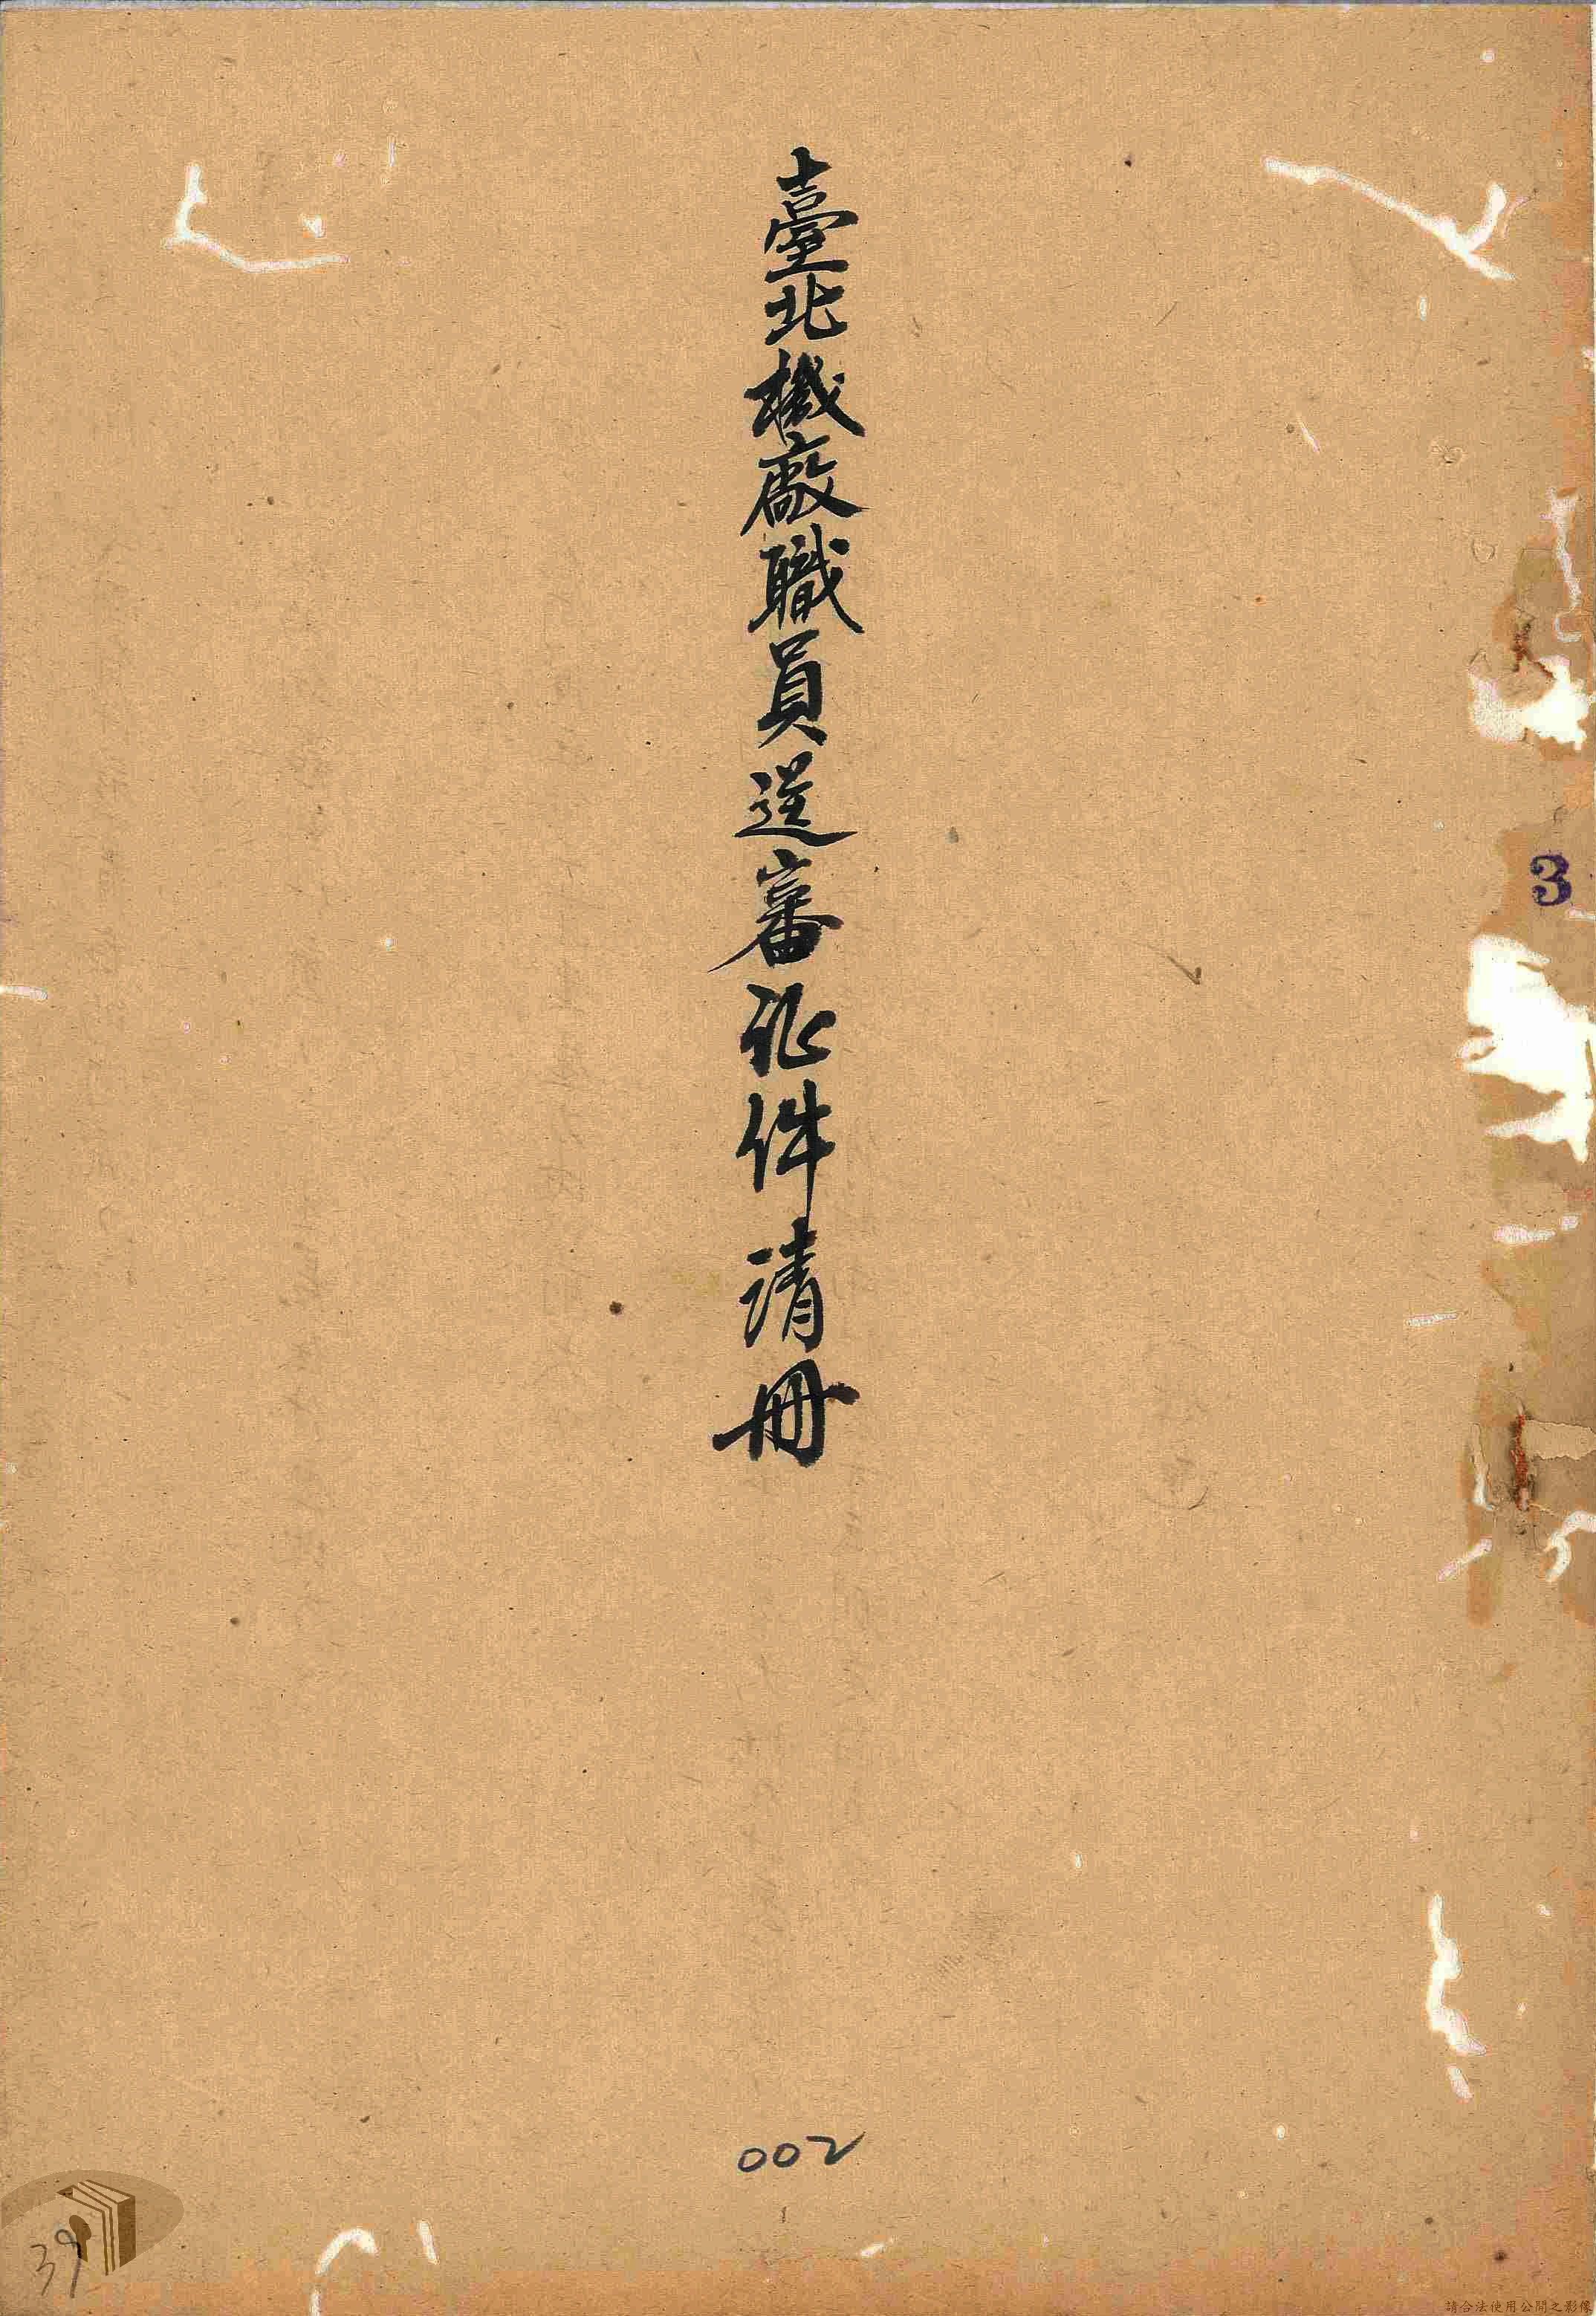 臺北機廠職員送審证件清冊
3
002
39
請合法使用公開之影像